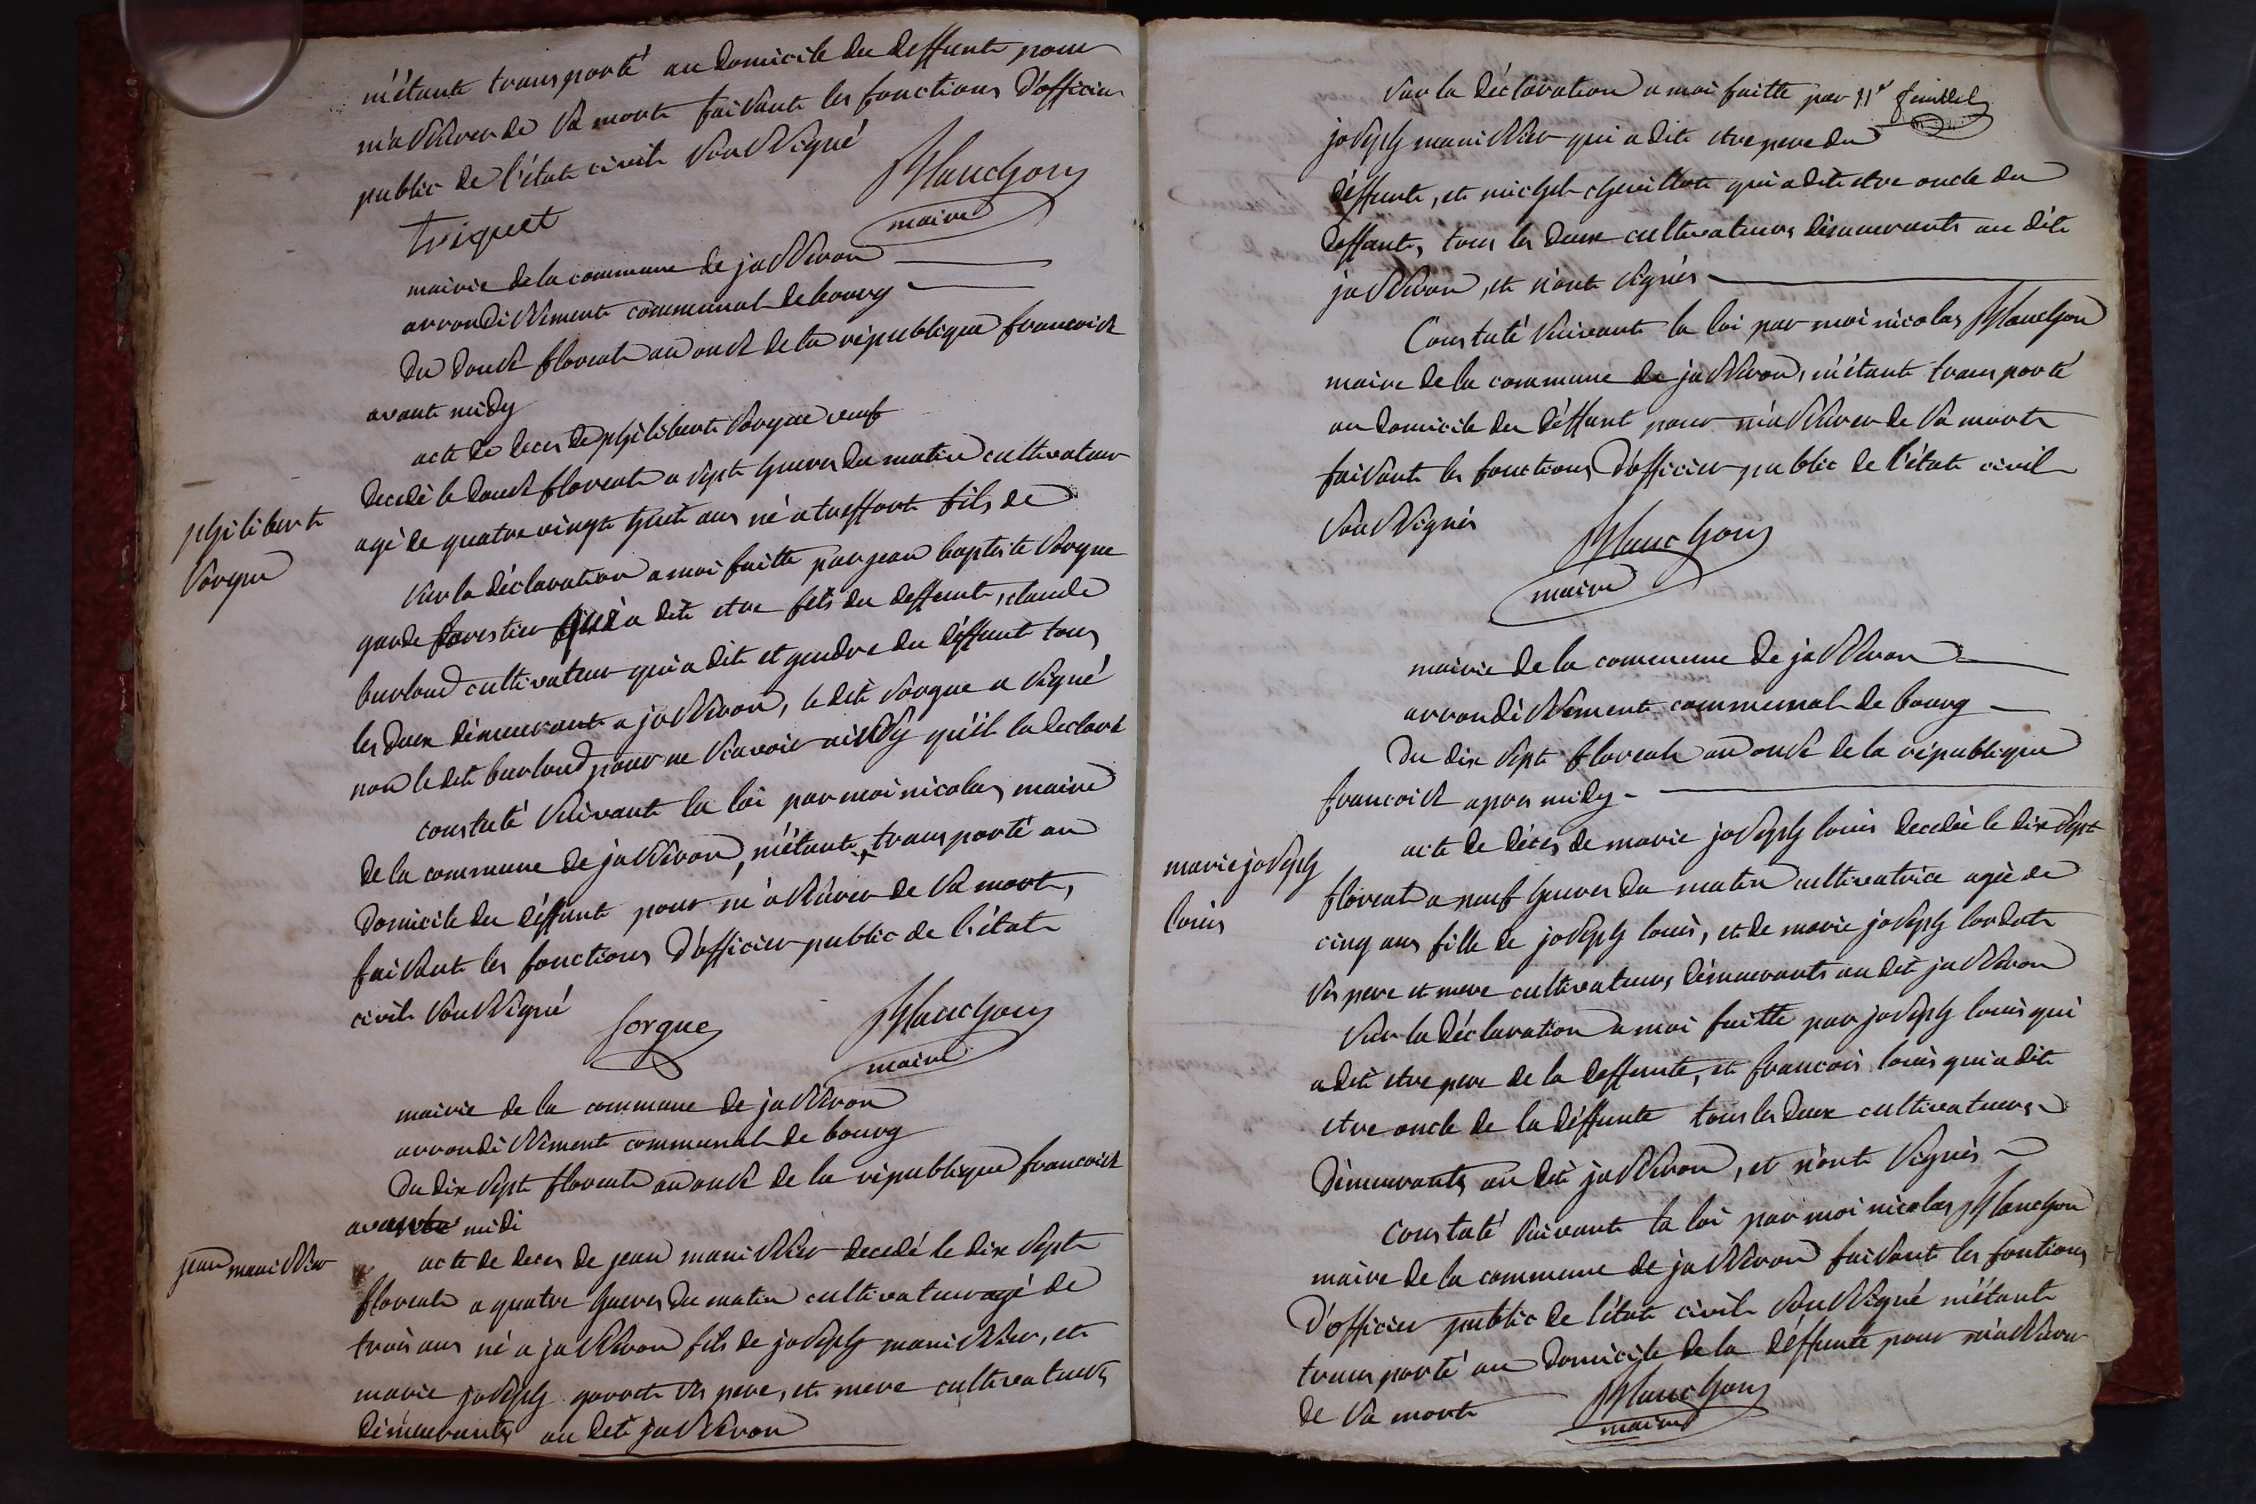 m'étant transporté au domicile du deffunt pour
m'assurer de sa mort faisant les fonctions d'officier
public de l'état civil soussigné
Triquet
Planchon
maire
mairie de la commune de jasseron
arrondissement communal de bourg
du douse floreal an onse de la république francoise
avant midy
acte de deces de philibert sorgue veuf
decedé le douse floreal a sept heures du matin cultivateur
philibert
sorgue
agé de quatre vingt huit ans né a treffort fils de
sur la déclaration a moi faitte par jean baptiste sorgue
garde forestier qui a dit etre fils du deffunt, claude
burloud cultivateur qui a dit et gendre du déffunt tous
les deux démeurant a jasseron, le dit sorgue a signé
non le dit burloud pour ne scavoir ainssy qu'il la declaré
constaté suivant la loi par moi nicolas maire
de la commune de jasseron, m'étant transporté au
domicile du déffunt pour m'assurer de sa mort,
faisant les fonctions d'officier public de l'état
civil soussigné
Sorgue
Planchon
maire
mairie de la commune de jasseron
arrondissement communal de bourg
du dix sept floreal an onse de la république francoise
avant midi
jean manissier
acte de deces de jean manissier decedé le dix sept
floreal a quatre heures du matin cultivateur agé de
trois ans né a jasseron fils de joseph manissier, et
marie joseph ses pere, et mere cultivateurs
démeurants au dit jasseron
sur la déclaration a moi faitte par
joseph manissier qui a dit etre pere du
déffunt, et michel chevillot qui a dit etre oncle du
deffunt, tous les deux cultivateurs démeurants au dit
jasseron, et n'ont signés
Constaté suivant la loi par moi nicolas Planchon
maire de la commune de jasseron, m'étant transporté
au domicile du déffunt pour m'assurer de sa mort
faisant les fonctions d'officier public de l'état civil
soussignés
Planchon
maire
mairie de la commune de jasseron
arrondissement communal de bourg
du dix sept floreal an onse de la république
francoise apres midy
marie joseph
louis
acte de décés de marie joseph louis decedée le dix sept
floreal a neuf heures du matin cultivatrice agée de
cinq ans fille de joseph louis, et de marie joseph
ses pere et mere cultivateurs démeurants au dit jasseron
sur la déclaration a moi faitte par joseph louis qui
a dit etre pere de la deffunte, et francois louis qui a dit
etre oncle de la déffunte tous les deux cultivateurs
démeurants au dit jasseron, et n'ont signés
constaté suivant la loi par moi nicolas Planchon
maire de la commune de jasseron faisant les fontions
d'officier public de l'état civil soussigné m'étant
transporté au domicile de la déffunte pour m'assurer
de sa mort
Planchon
maire